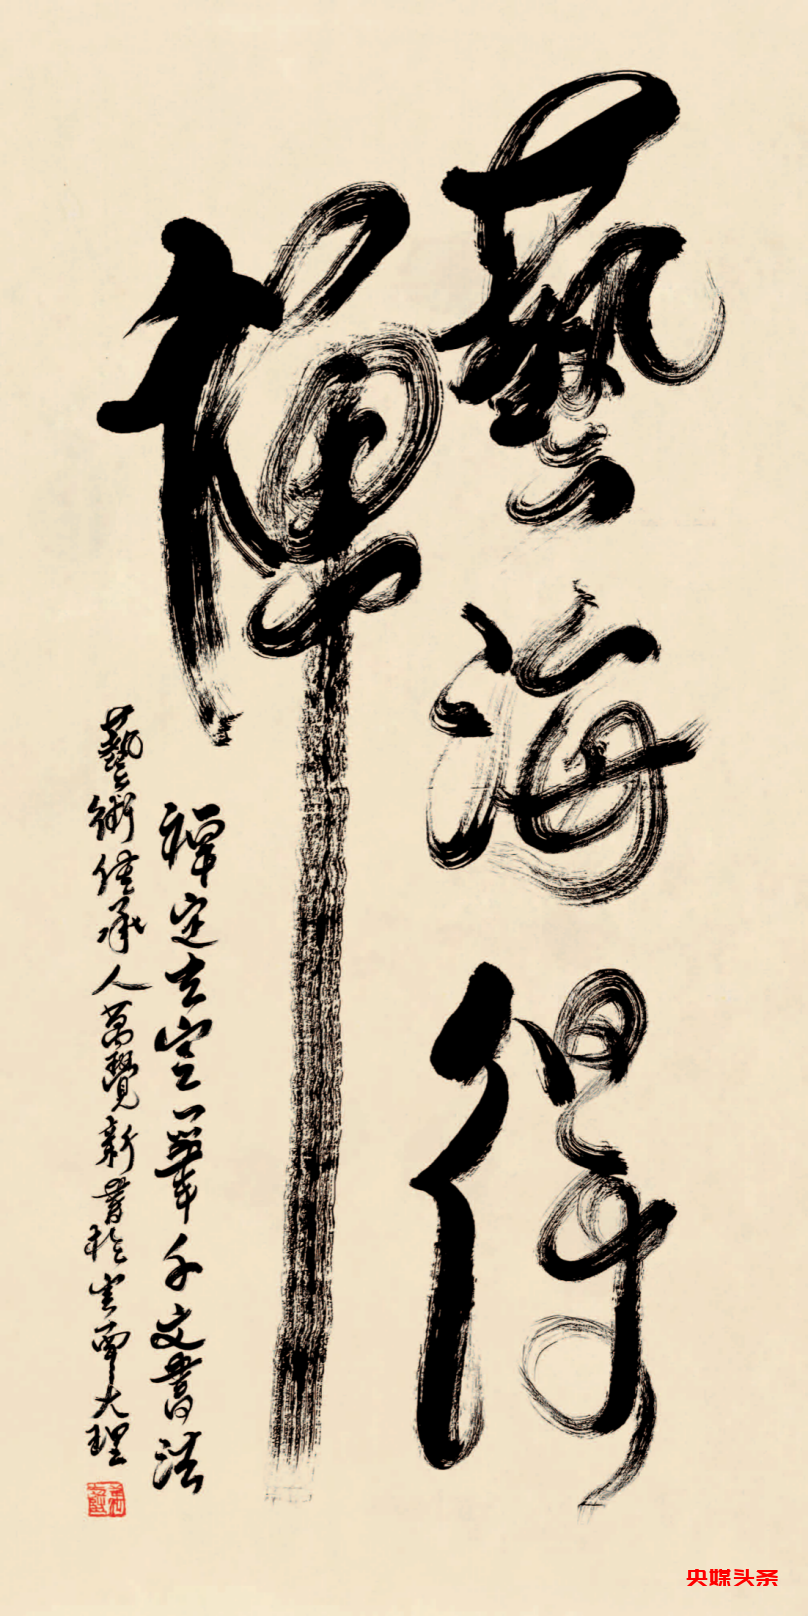 藝海得
禪
禪定玄空筆千文書法
藝術傳承人萬贊新書於雲南大理
央媒头条